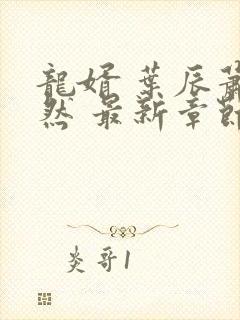 龍婿 葉辰蕭
然 最新章節
炎哥1